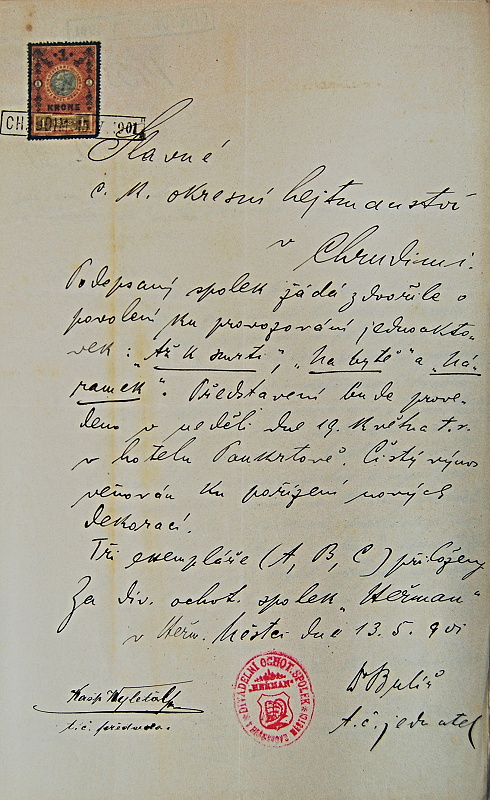 1
KRONE
CHRUDIM 15 V. 1901
Slavné
c. k. okresní hejtmanství
v Chrudimi.
Podepsaný spolek žádá zdvořile o
povolení ku provozování jednoakto-
vek: „Až k smrti“, „Na bytě“ a „Ná-
ramek“. Představení bude prove-
deno v neděli dne 19. května t. r.
v hotelu Pankrtově. Čistý výnos
věnován ku pořízení nových
dekorací.
Tři exempláře (A, B, C) přiloženy
Za div. ochot. spolek „Heřman“
v Heřm. Městci dne 13. 5. 901
t. č. předseda.
t. č. jednatel
DIVADELNÍ OCHOT. SPOLEK
"HEŘMAN"
V HEŘMANOVĚ MĚSTCI